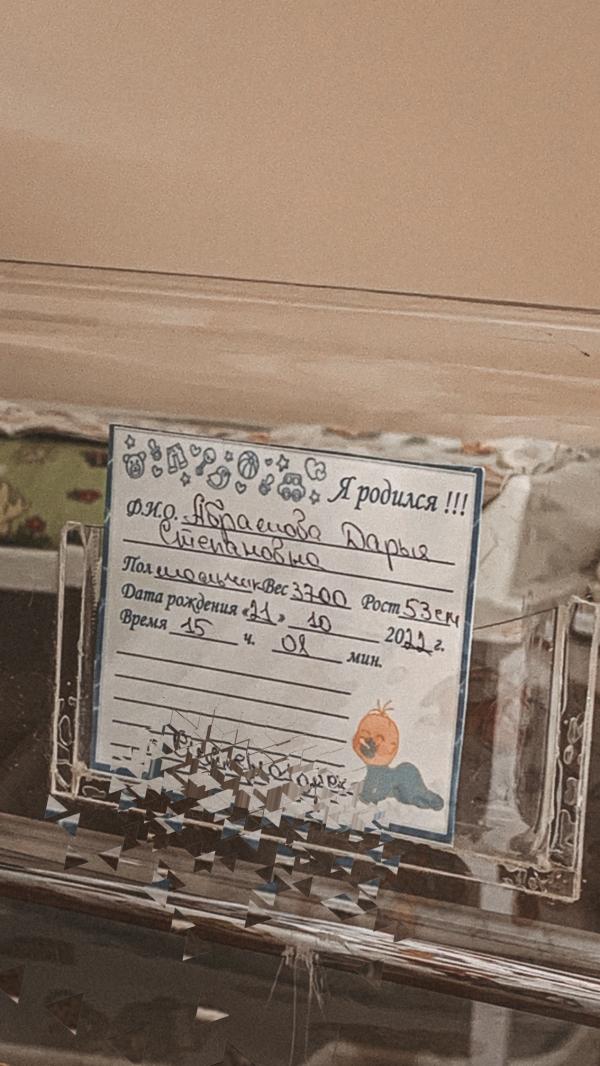 Я родился !!!
Ф.И.О. Абрамова Дарья
Степановна
Пол мальчик Вес 3700 Рост 53 см
Дата рождения «21» 10 2022 г.
Время 15 ч. 01 мин.